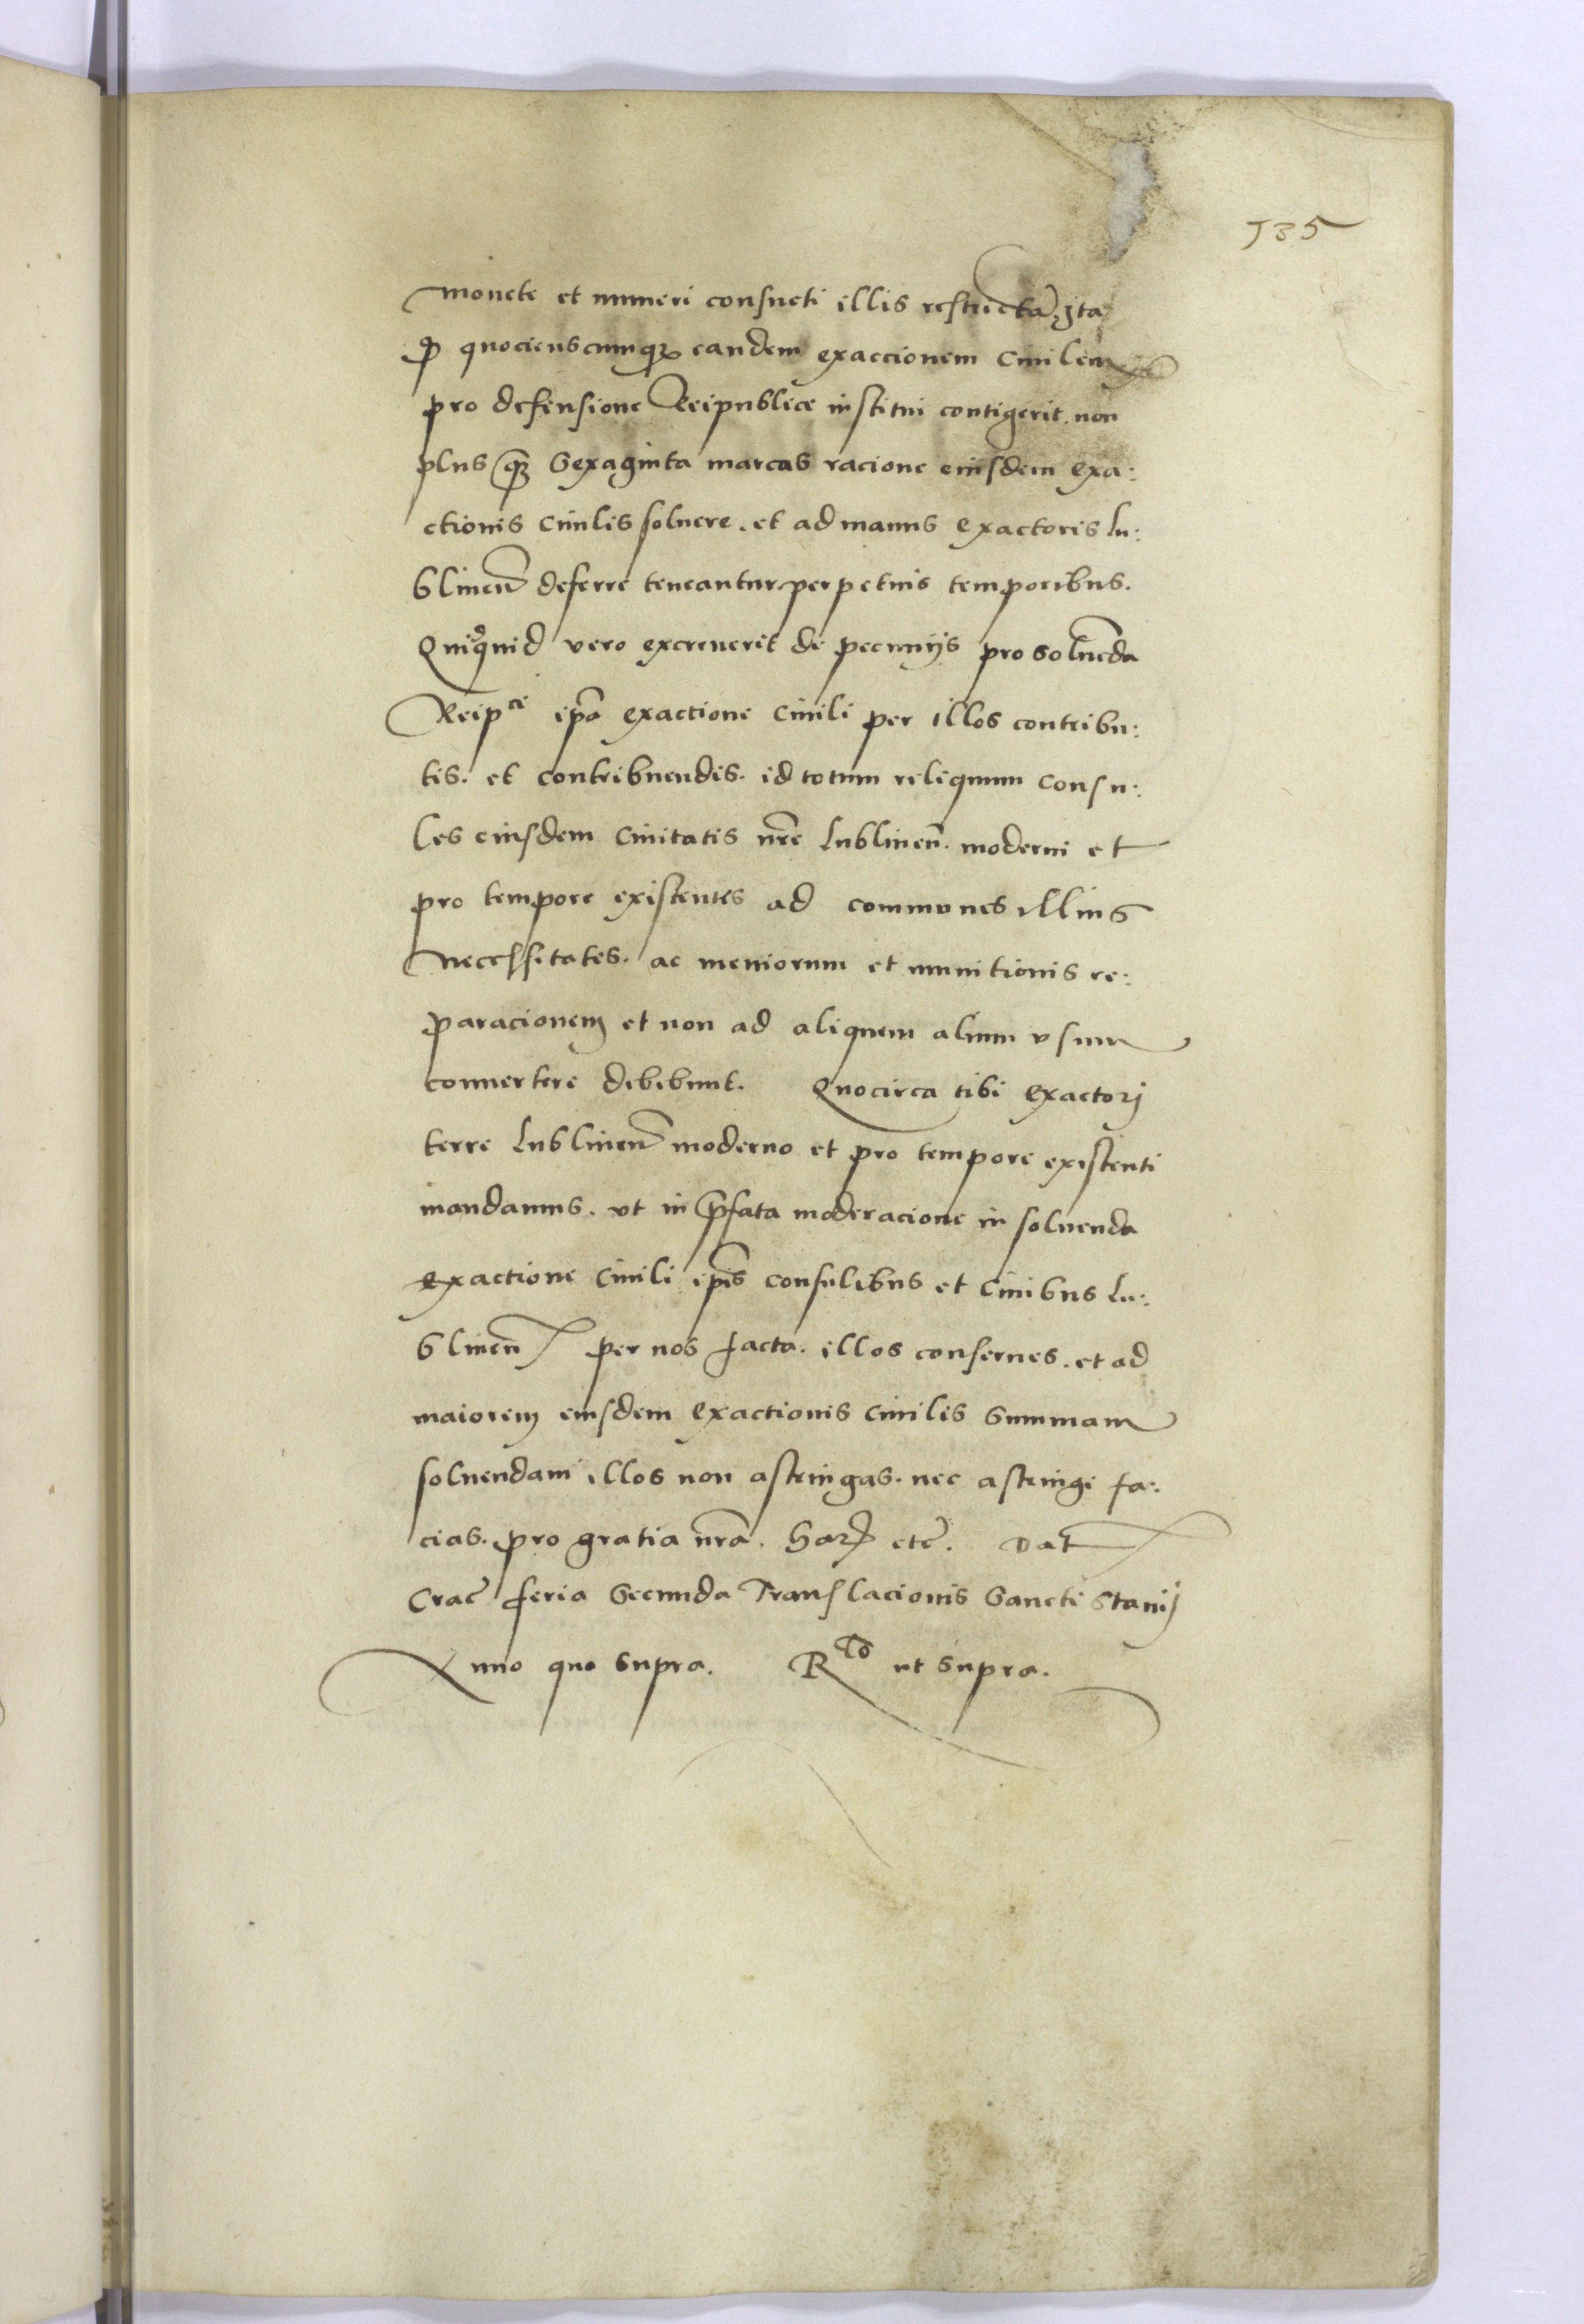 135
monete et numeri consueti illis restrictam, Ita
qđ quocienscumqꝫ eandem exaccionem Civilem
pro defensione Reipublice institui contigerit. non
plus qͣꝫ Sexaginta marcas racione eiusdem exa:
ctionis Civilis soluere. et ad manus exactoris Lu:
blineñ deferre teneantur perpetuis temporibus.
Quicquid vero excreuerit de pecunijs pro soluẽda
Reipᶜᵉ ip̃a exactione Ciuili per illos contribu:
tis. et contribuendis. id totum reliquum Consu:
les eiusdem Ciuitatis nr̃e Lublineñ. moderni et
pro tempore existentes ad communes illius
necessitates. ac meniorum et munitionis re:
paracionem et non ad aliquem alium vsum
conuertere debebunt. Quocirca tibi Exactorj
terre Lublineñ moderno et pro tempore existenti
mandamus. vt in p̃fata moderacione in soluenda
exactione Ciuili ip̃is consulibus et Ciuibus Lu:
blineñ per nos facta. illos conserues. et ad
maiorem eiusdem exactionis Ciuilis Summam
soluendam illos non astringas. nec astringi fa:
cias. pro gratia nr̃a. Harꝫ etc̃. Dat
Crac̃ feria Secunda Translacionis Sancti Stanij
Anno quo Supra. Rᵗᵒ ut Supra.